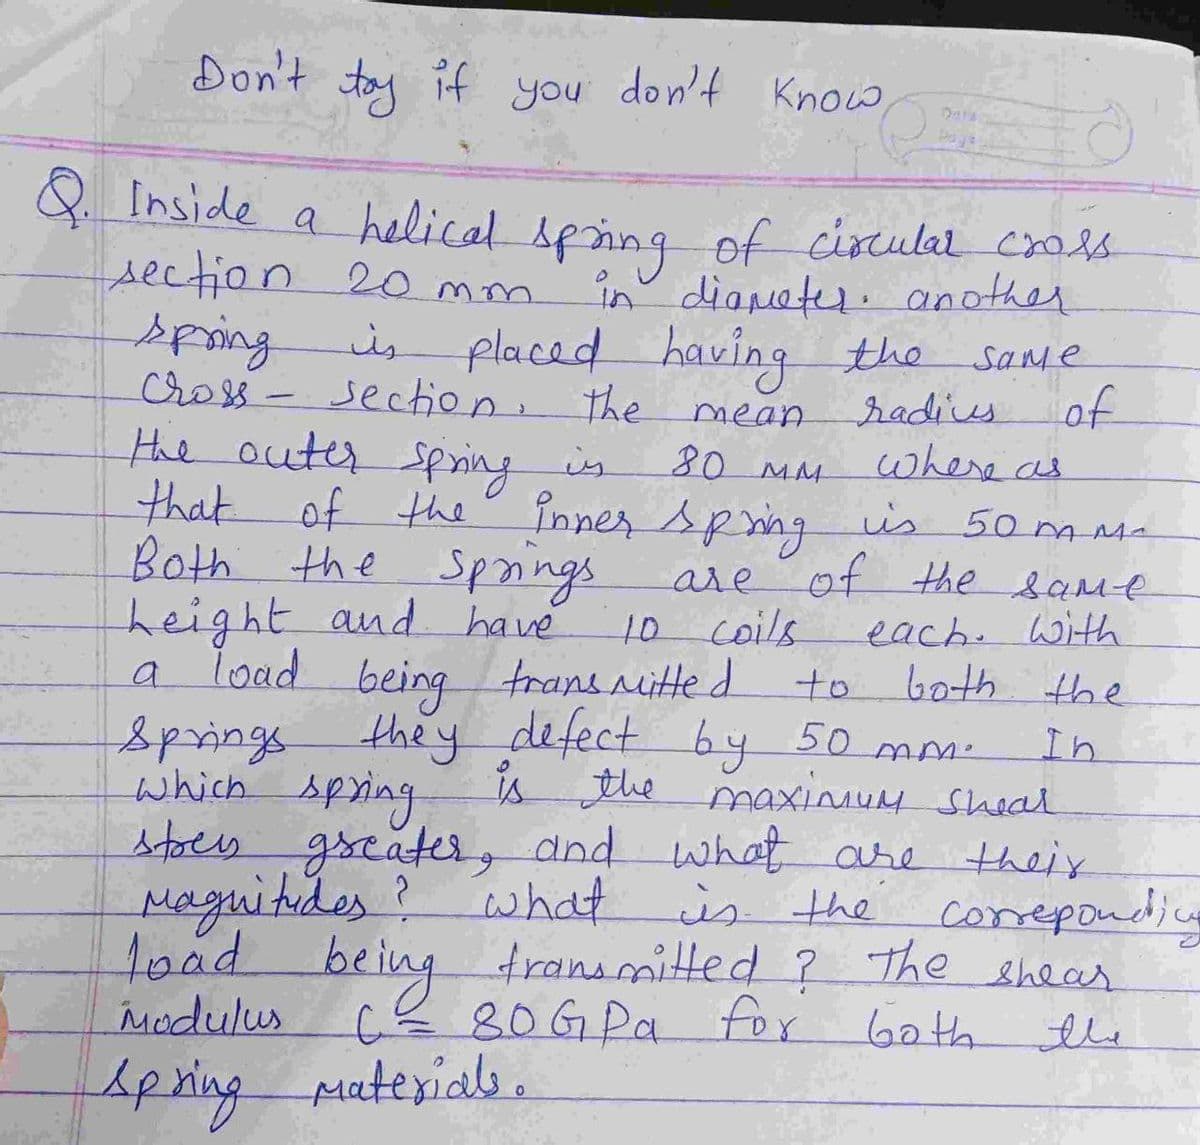 Don't toy if you don't Know
Date
Page
Q. Inside a helical spring of circular cross
section 20 mm in diameter. another
spring is placed having the same
cross - section. the mean radius of
the outer spring is 80 mm where as
that of the inner spring is 50 mm.
Both the springs are of the same
height and have 10 coils each. With
a load being transmitted to both the
springs they defect by 50 mm. In
which spring is the maximum shear
stress greater, and what are their
Magnitudes? what is the correponding
load being transmitted? The shear
modulus C = 80 GPa for both the
spring materials.